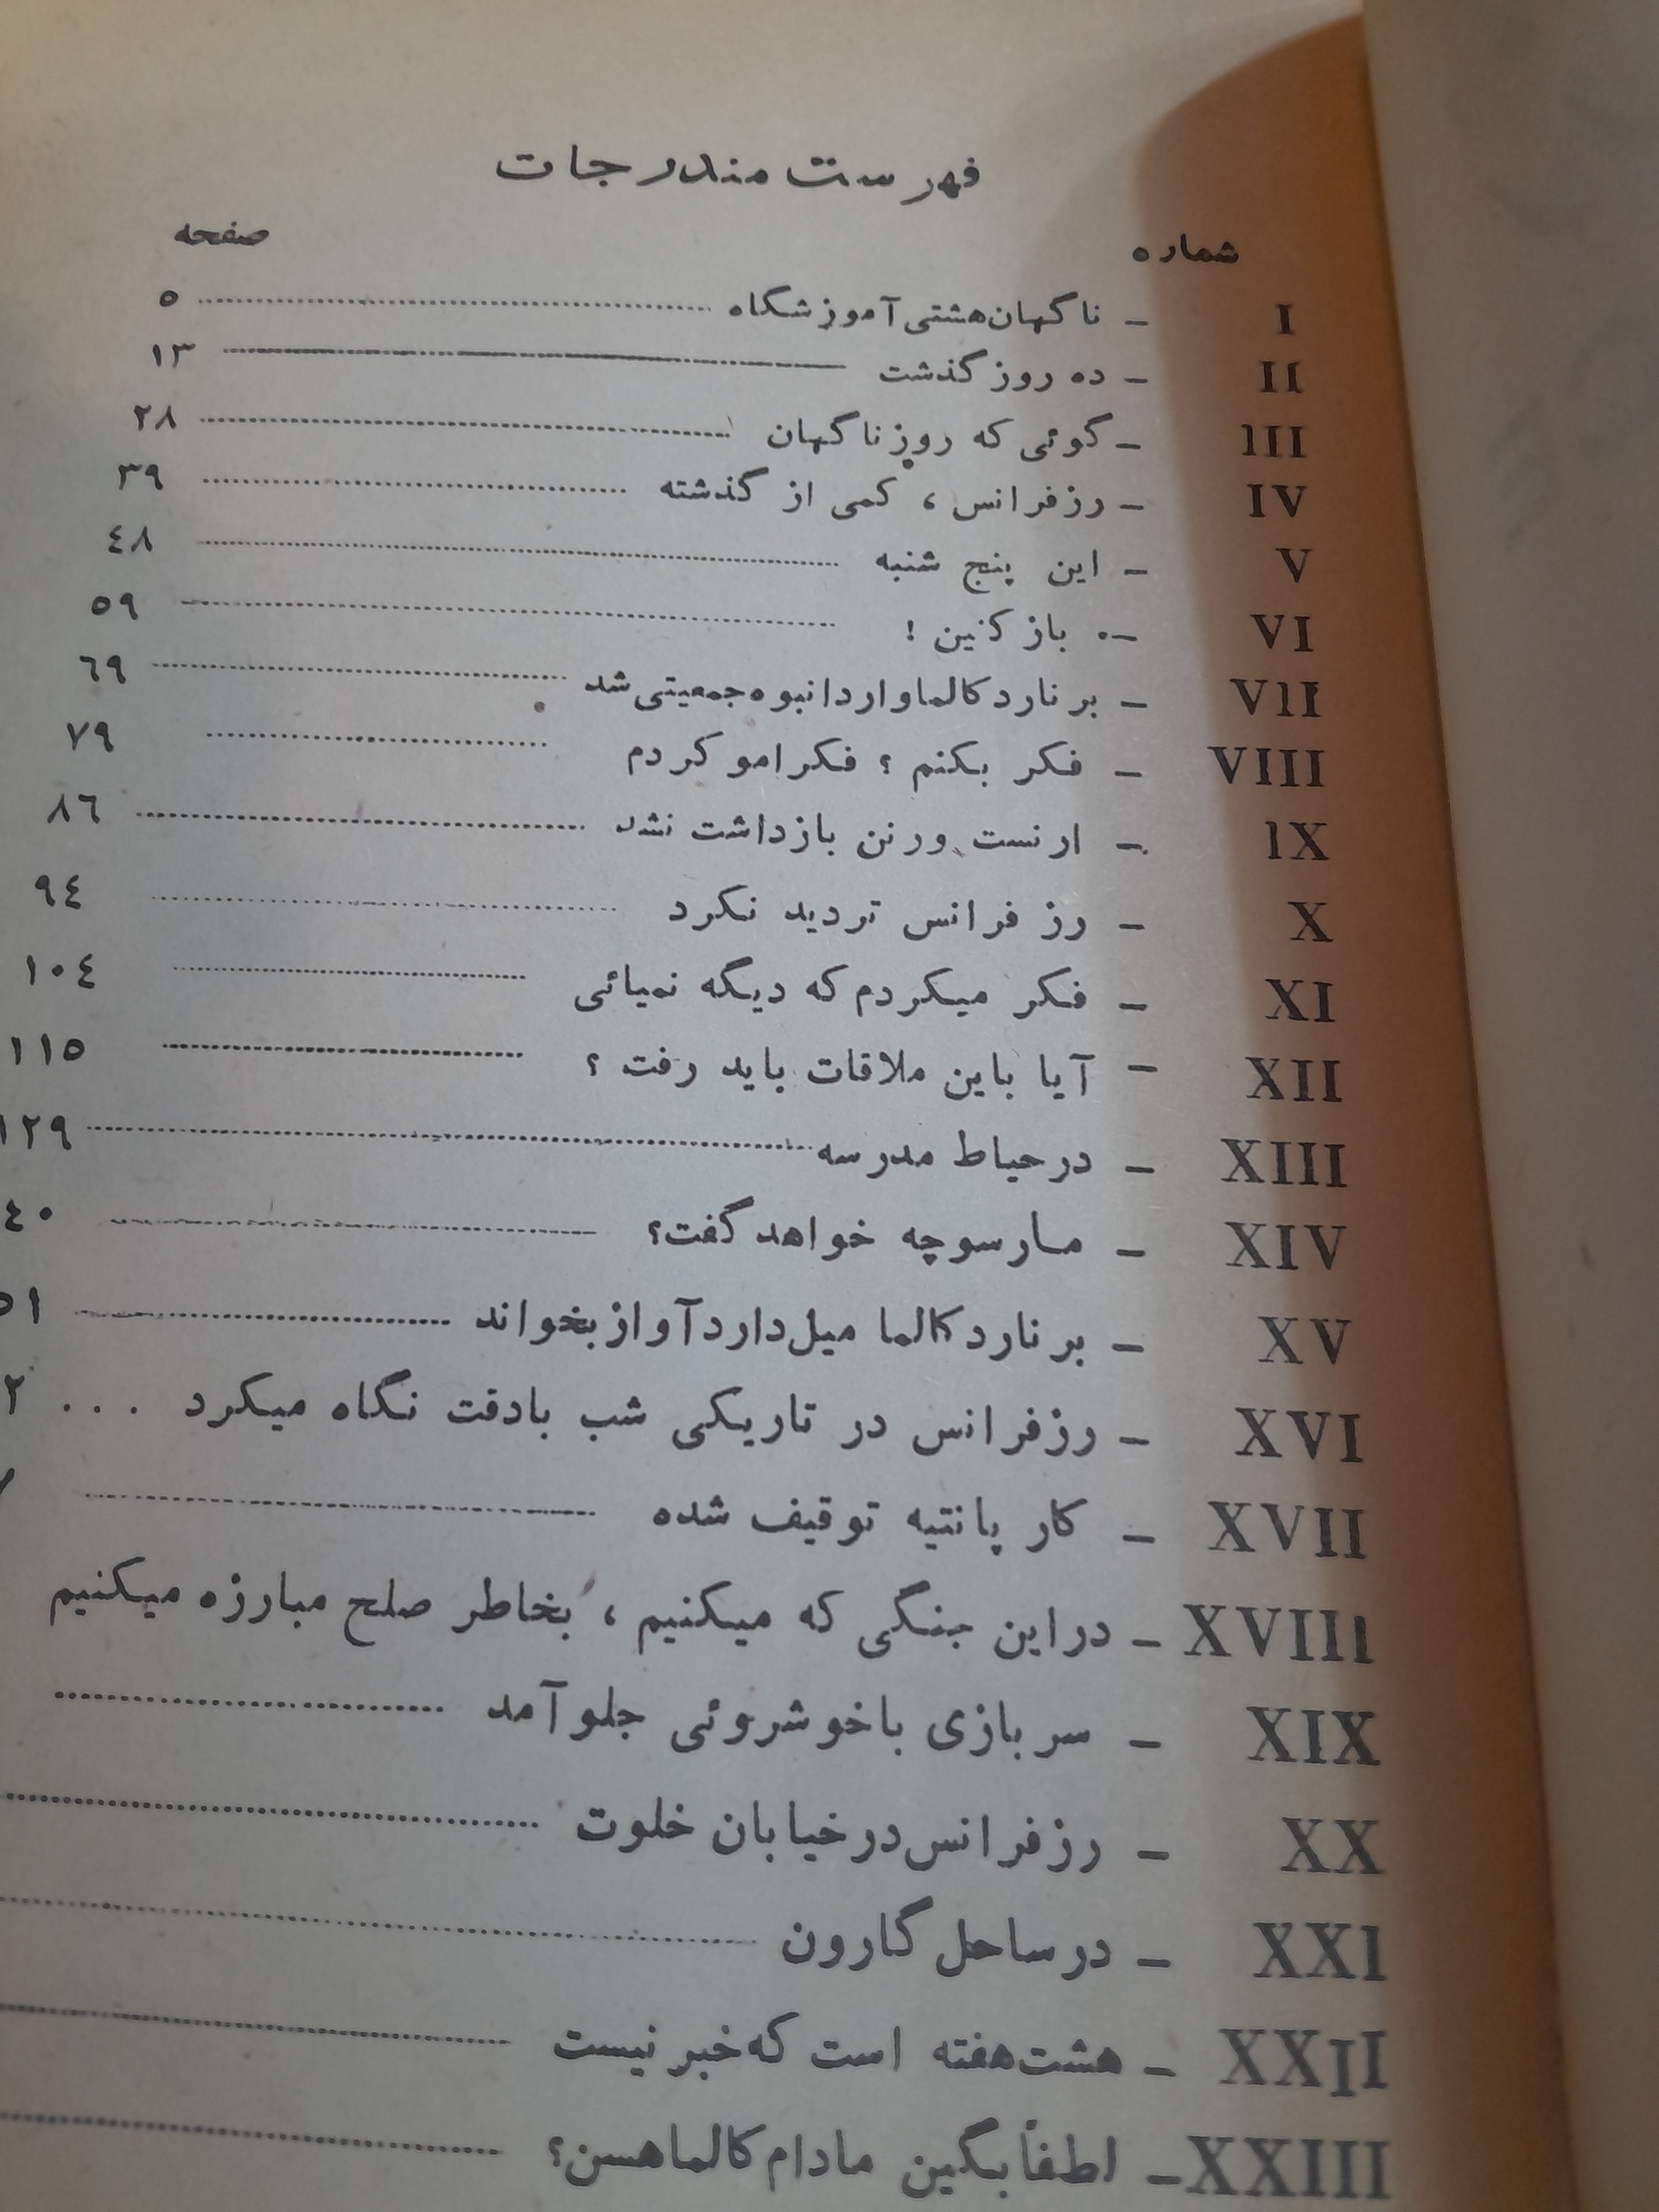 فهرست مندرجات
شماره صفحه
I – ناگهان هشتی آموزشگاه ۵
II – ده روز گذشت ۱۳
III – گوئی که روز ناگهان ۲۸
IV – رزفرانس ، کمی از گذشته ۳۹
V – این پنج شنبه ۴۸
VI – باز کنین ! ۵۹
VII – برنارد کالما وارد انبوه جمعیتی شد ۶۹
VIII – فکر بکنم ؟ فکرامو کردم ۷۹
IX – ارنست ورنن بازداشت نشد ۸۶
X – رز فرانس تردید نکرد ۹۴
XI – فکر میکردم که دیگه نمیائی ۱۰۴
XII – آیا باین ملاقات باید رفت ؟ ۱۱۵
XIII – در حیاط مدرسه ۱۲۹
XIV – مارسو چه خواهد گفت؟ ۴۰
XV – برنارد کالما میل دارد آواز بخواند ۵۱
XVI – رزفرانس در تاریکی شب بادقت نگاه میکرد ... ۲
XVII – کار پانتیه توقیف شده
XVIII – دراین جنگی که میکنیم ، بخاطر صلح مبارزه میکنیم
XIX – سربازی باخوشروئی جلو آمد
XX – رزفرانس در خیابان خلوت
XXI – در ساحل گارون
XXII – هشت هفته است که خبر نیست
XXIII – لطفاً بگین مادام کالما هسن؟